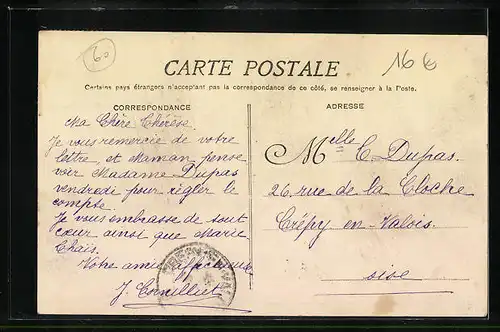 60
16 €
CARTE POSTALE
Certains pays étrangers n'acceptant pas la correspondance de ce côté, se renseigner à la Poste.
CORRESPONDANCE
Ma Chère Thérèse.
Je vous remercie de votre
lettre, et Maman pense
voir Madame Dupas
vendredi pour règler le
compte.
Je vous embrasse de tout
cœur ainsi que Marie
Votre amie affectueuse
J. Cornilliet
ADRESSE
Melle C. Dupas.
26 rue de la Cloche
Crépy en-Valois.
oise